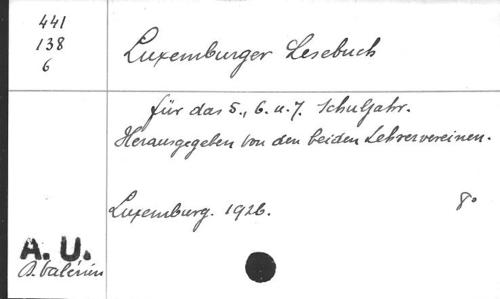 441
138
6
Luxemburger Lesebuch
für das 5., 6. u. 7. Schuljahr.
Herausgegeben von den beiden Lehrervereinen.
Luxemburg. 1926. 8°
A. U.